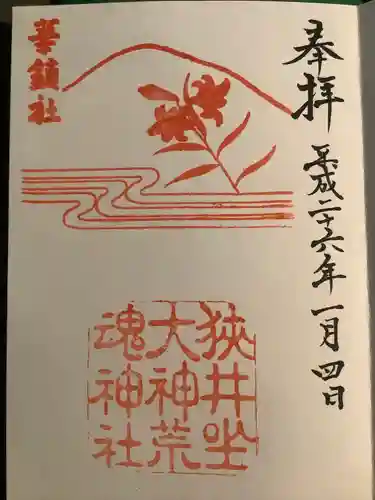 奉拝
平成二十六年一月四日
華鎮社
狭井坐
大神荒
魂神社